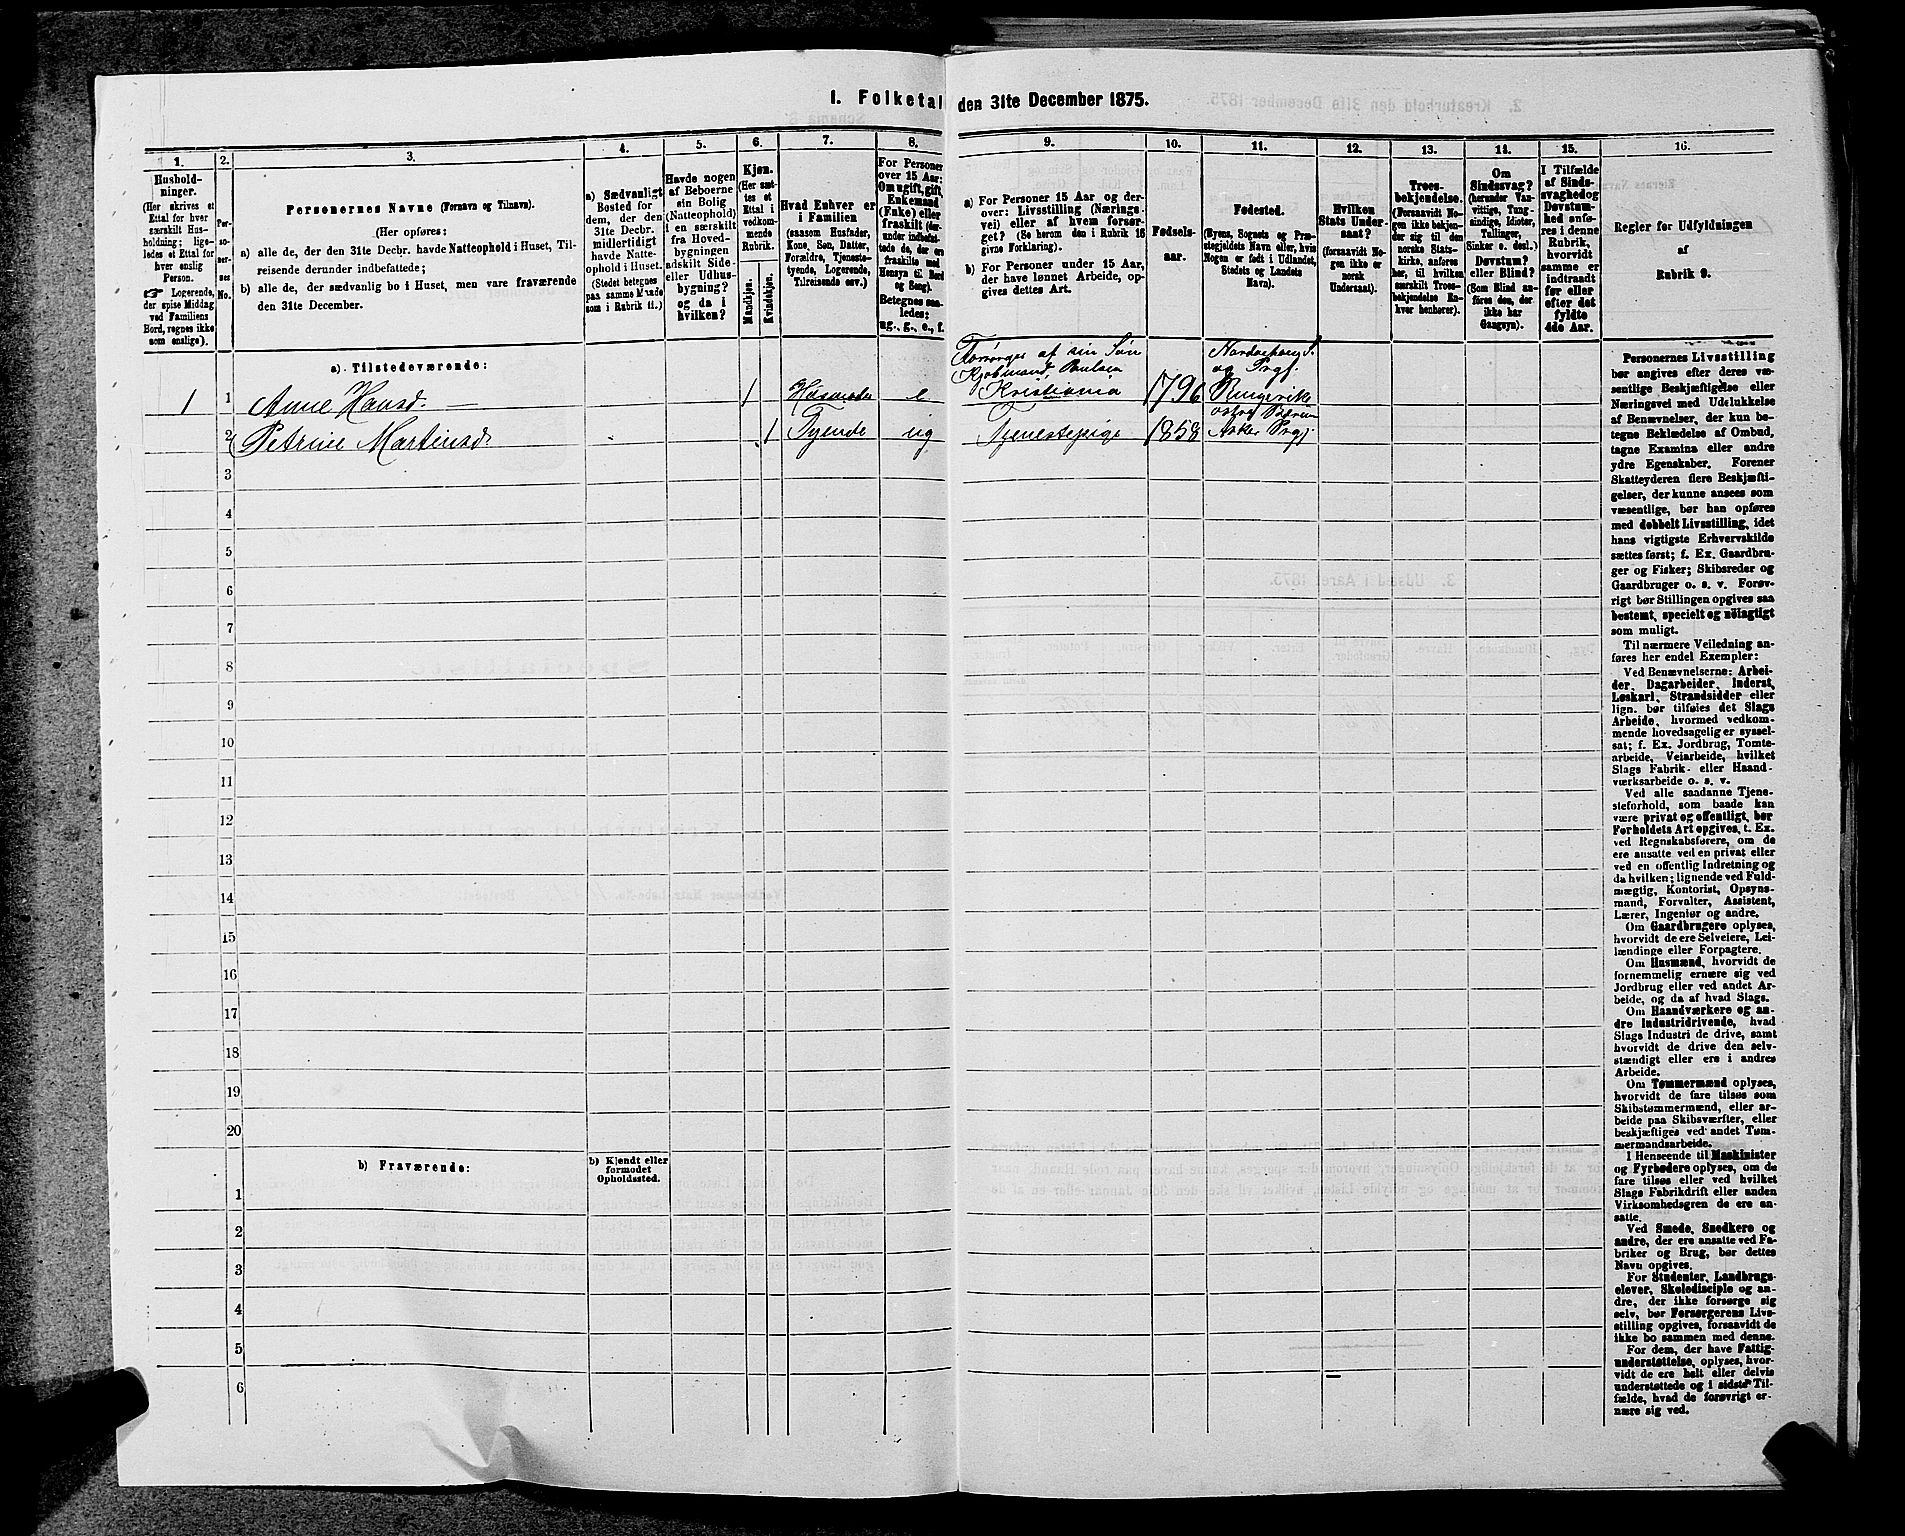 1. Folketal den 31te December 1875.
1.
Hushold-
ninger.
(Her skrives et
Ettal for hver
særskilt Hus-
holdning; lige-
ledes et Ettal for
hver enslig
Person.
☞ Logerende,
der spise Middag
ved Familiens
Bord, regnes ikke
som enslige).
2.
Per-
so-
ner-
nes
No.
3.
Personernes Navne (Fornavn og Tilnavn).
(Her opføres:
a) alle de, der den 31te Decbr. havde Natteophold i Huset, Til-
reisende derunder indbefattede;
b) alle de, der sædvanlig bo i Huset, men vare fraværende
den 31te December.
4.
a) Sædvanligt
Bosted for
dem, der den
31te Decbr.
midlertidigt
havde Natte-
ophold i Huset.
(Stedet betegnes
paa samme Maade
som i Rubrik 11.)
5.
Havde nogen
af Beboerne
sin Bolig
(Natteophold)
i en særskilt
fra Hoved-
bygningen
adskilt Side-
eller Udhus-
bygning?
og da i
hvilken?
6.
Kjøn.
(Her sæt-
tes et
Ettal i
vedkom-
mende
Rubrik.
Mandkjøn.
Kvindekjøn.
7.
Hvad Enhver er
i Familien
(saasom Husfader,
Kone, Søn, Datter,
Forældre, Tjeneste-
tyende, Logerende,
Tilreisende osv.)
8.
For Personer
over 15 Aar:
Om ugift, gift,
Enkemand
(Enke) eller
fraskilt (der-
under indbefat-
tede de, der ere
fraskilte med
Hensyn til Bord
og Seng).
Betegnes saa-
ledes:
ug., g., e., f.
9.
a) For Personer 15 Aar og der-
over: Livsstilling (Nærings-
vei) eller af hvem forsør-
get? (Se herom den i Rubrik 16
givne Forklaring).
b) For Personer under 15 Aar,
der have lønnet Arbeide, op-
gives dettes Art.
10.
Fødsels-
aar.
11.
Fødested.
(Byens, Sognets og Præ-
stegjeldets Navn eller, hvis
Nogen er født i Udlandet,
Stedets og Landets
Navn).
12.
Hvilken
Stats Under-
saat?
(forsaavidt No-
gen ikke er
norsk
Undersaat).
13.
Troes-
bekjendelse.
(Forsaavidt No-
gen ikke bekjen-
der sig til den
norske Stats-
kirke, anføres
her, til hvilken
særskilt Troes-
bekjendelse En-
hver henhører).
14.
Om
Sindssvag?
(herunder Van-
vittige, Tung-
sindige, Idioter,
Tullinger,
Sinker o. desl.).
Døvstum?
eller Blind?
(Som Blind an-
føres den, der
ikke har
Gangsyn).
15.
I Tilfælde
af Sinds-
svaghed og
Døvstum-
hed anfø-
res i denne
Rubrik,
hvorvidt
samme er
indtraadt
før eller
efter det
fyldte
4de Aar.
16.
Regler for Udfyldningen
af
Rubrik 9.
a) Tilstedeværende:
1 1 Anne Hansd. 1 Husmoder e Forsørges af sin Søn
Kjøbmand Paulsen
Kristiania 1796 Norderhoug S.
og Prgj.
Ringerike
2 Petrine Martinsd 1 Tyende ug Tjenestepige 1858 Bærum
Asker Prgj.
3
4
5
6
7
8
9
10
11
12
13
14
15
16
17
18
19
20
b) Fraværende:
b) Kjendt eller
formodet
Opholdssted.
1
2
3
4
5
6
Personernes Livsstilling
bør angives efter deres væ-
sentlige Beskjæftigelse eller
Næringsvei med Udelukkelse
af Benævnelser, der kun be-
tegne Beklædelse af Ombud,
tagne Examina eller andre
ydre Egenskaber. Forener
Skatteyderen flere Beskjæfti-
gelser, der kunne ansees som
væsentlige, bør han opføres
med dobbelt Livsstilling, idet
hans vigtigste Erhvervskilde
sættes først; f. Ex. Gaardbru-
ger og Fisker; Skibsreder og
Gaardbruger o. s. v. Forøv-
rigt bør Stillingen opgives saa
bestemt, specielt og nøiagtigt
som muligt.
Til nærmere Veiledning an-
føres her endel Exempler:
Ved Benævnelserne: Arbei-
der, Dagarbeider, Inderst,
Løskarl, Strandsidder eller
lign. bør tilføies det Slags
Arbeide, hvormed vedkom-
mende hovedsagelig er syssel-
sat; f. Ex. Jordbrug, Tomte-
arbeide, Veiarbeide, hvilket
Slags Fabrik- eller Haand-
værksarbeide o. s. v.
Ved alle saadanne Tjene-
steforhold, som baade kan
være privat og offentligt, bør
Forholdets Art opgives, t. Ex.
ved Regnskabsførere, om de
ere ansatte ved en privat eller
ved en offentlig Indretning og
da hvilken; lignende ved Fuld-
mægtig, Kontorist, Opsyns-
mand, Forvalter, Assistent,
Lærer, Ingeniør og andre.
Om Gaardbrugere oplyses,
hvorvidt de ere Selveiere, Lei-
lændinge eller Forpagtere.
Om Husmænd, hvorvidt de
fornemmelig ernære sig ved
Jordbrug eller ved andet Ar-
beide, og da af hvad Slags.
Om Haandværkere og an-
dre Industridrivende, hvad
Slags Industri de drive, samt
hvorvidt de drive den selv-
stændigt eller ere i andres
Arbeide.
Om Tømmermænd oplyses,
hvorvidt de fare tilsøs som
Skibstømmermænd, eller ar-
beide paa Skibsværfter, eller
beskjæftiges ved andet Tøm-
mermandsarbeide.
I Henseende til Maskinister
og Fyrbødere oplyses, om de
fare tilsøs eller ved hvilket
Slags Fabrikdrift eller anden
Virksomhedsgren de ere an-
satte.
Ved Smede, Snedkere og
andre, der ere ansatte ved Fa-
briker og Brug, bør dettes
Navn opgives.
For Studenter, Landbrugs-
elever, Skoledisciple og an-
dre, der ikke forsørge sig
selv, bør Forsørgerens Livs-
stilling opgives, forsaavidt de
ikke bo sammen med denne.
For dem, der have Fattig-
understøttelse, oplyses, hvor-
vidt de ere helt eller delvis
understøttede og i sidste Til-
fælde, hvad de forøvrigt er-
nære sig ved.